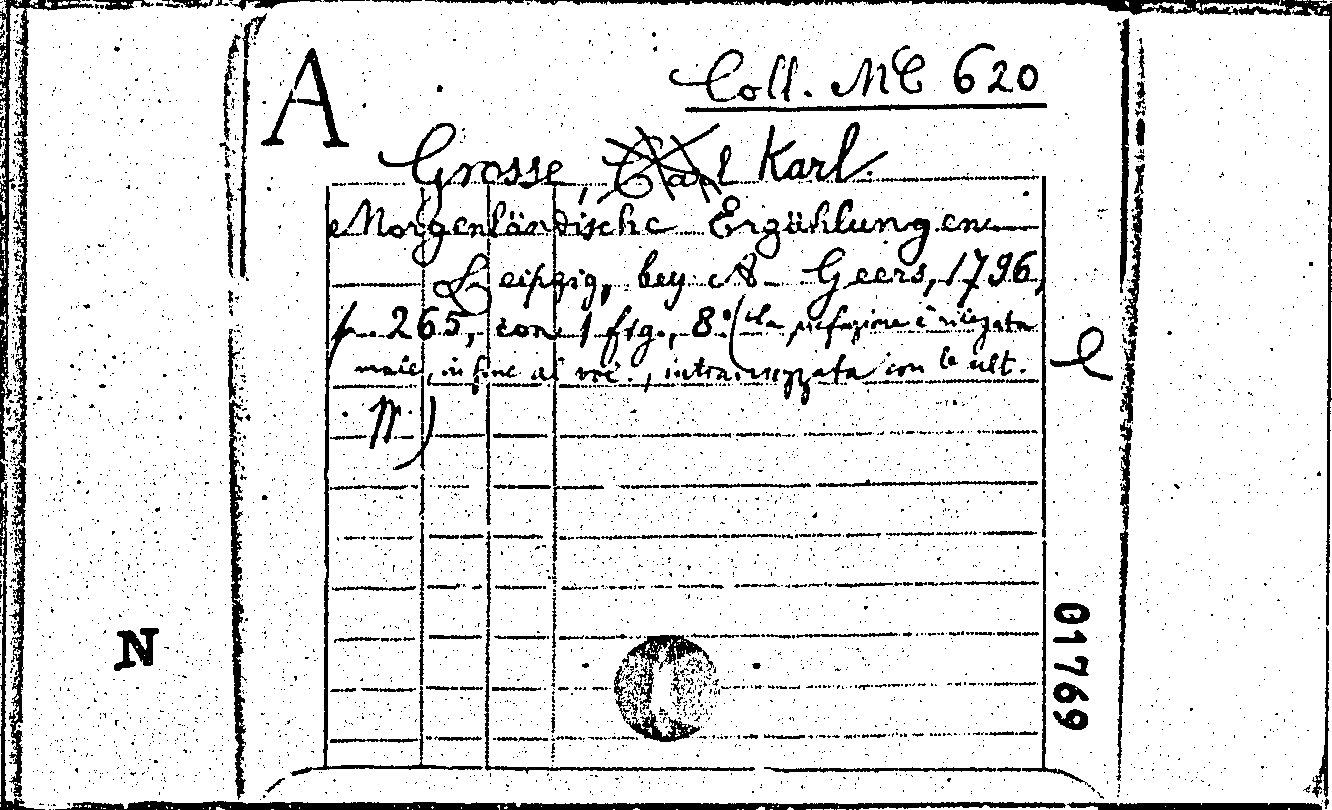 A
Coll. MC 620
Grosse, Carl Karl.
Morgenländische Erzählungen.
Leipzig, bey A. Geers, 1796,
p. 265, con 1 fig., 8° (la prefazione è rilegata
male, in fine al vol., intramezzata con le ult.
pp.)
N
01769